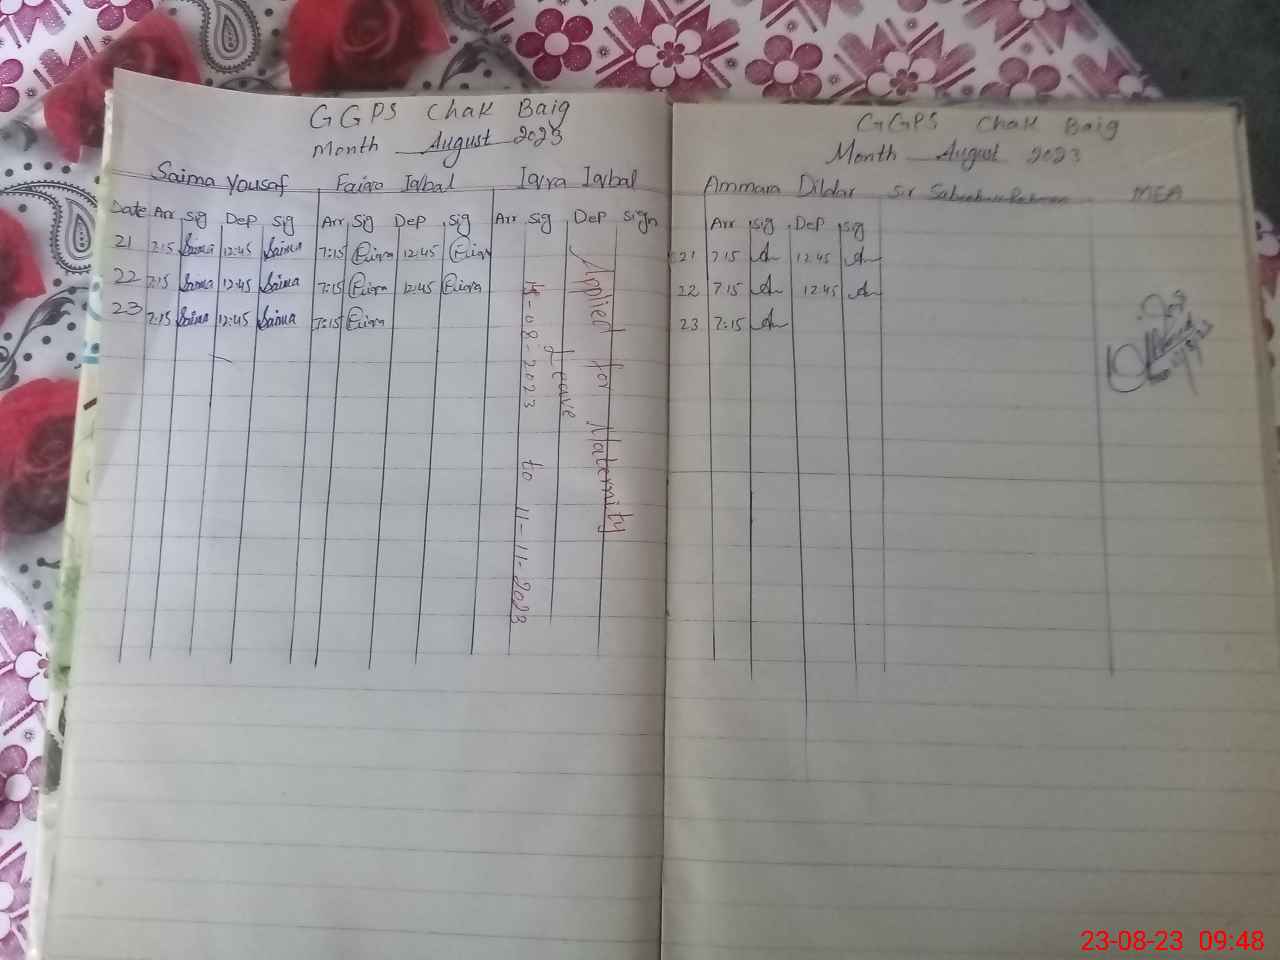 GGPS Chak Baig
Month August 2023
Saima Yousaf Faiza Iqbal Iqra Iqbal
Date Arr Sig Dep Sig Arr Sig Dep Sig Arr Sig Dep Sign
21 7:15 Saima 12:45 Saima 7:15 12:45
22 7:15 Saima 12:45 Saima 7:15 12:45
23 7:15 Saima 12:45 Saima 7:15
Applied for Maternity
Leave
-08-2023 to 11-11-2023
GGPS Chak Baig
Month August 2023
Ammara Dildar Sir MEA
Arr Sig Dep Sig
21 7:15 12:45
22 7:15 12:45
23 7:15
23-08-23 09:48